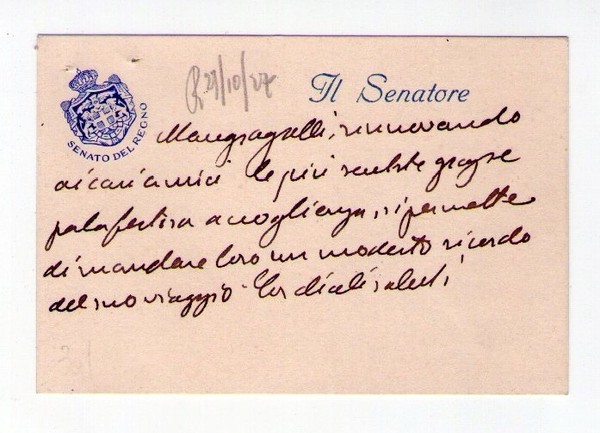 R 27/10/27
Il Senatore
SENATO DEL REGNO
Mangiagalli, rinnovando
ai cari amici le più sentite grazie
per la festosa accoglienza, si permette
di mandare loro un modesto ricordo
del suo viaggio. Cordiali saluti